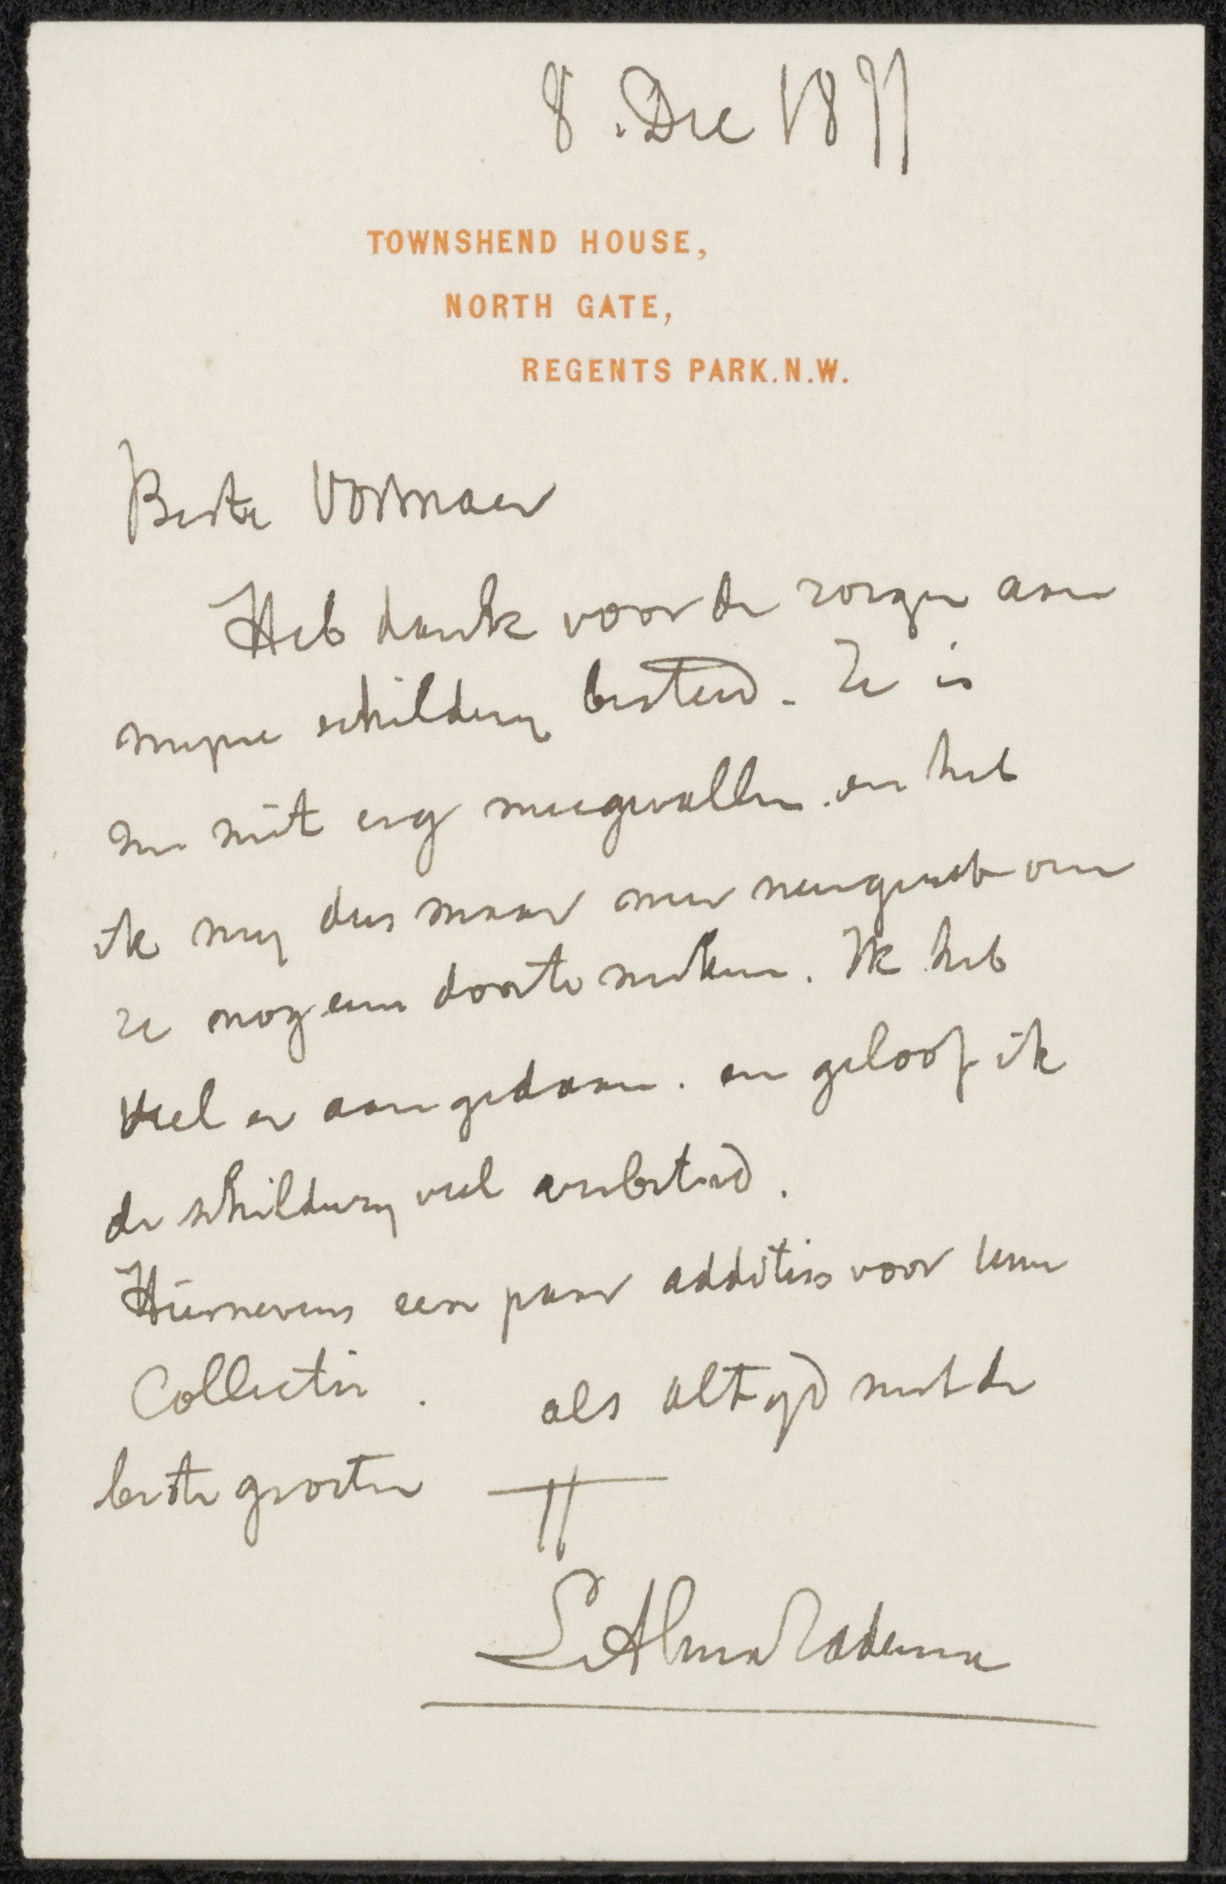 8. Dec 1877
TOWNSHEND HOUSE,
NORTH GATE,
REGENTS PARK. N. W.
Beste Vosmaer
Heb dank voor de zorgen aan
mijne schildery besteed. Ze is
me niet erg meegevallen. en heb
ik my dus maar neergezet om
ze nog eens door te werken. Ik heb
veel er aan gedaan. en geloof ik
de schildery veel verbeterd.
Hiernevens een paar addities voor uwe
Collectie. als altyd met de
beste groeten
L Alma Tadema